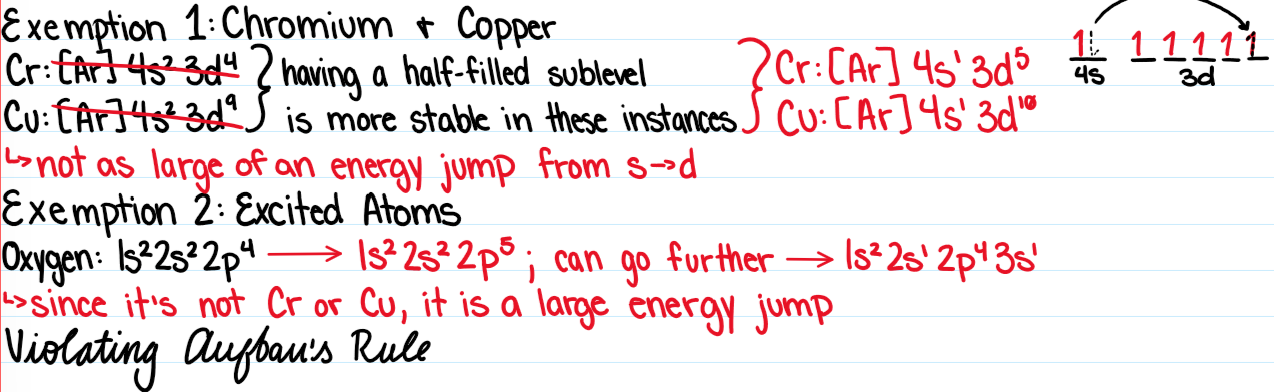 Exemption 1: Chromium + Copper
Cr: [Ar] 4s² 3d⁴ } having a half-filled sublevel } Cr: [Ar] 4s¹ 3d⁵ 1 1 1 1 1 1 1
4s 3d
Cu: [Ar] 4s² 3d⁹ } is more stable in these instances } Cu: [Ar] 4s¹ 3d¹⁰
↳ not as large of an energy jump from s→d
Exemption 2: Excited Atoms
Oxygen: 1s² 2s² 2p⁴ → 1s² 2s² 2p⁵ ; can go further → 1s² 2s¹ 2p⁴ 3s¹
↳ since it's not Cr or Cu, it is a large energy jump
Violating Aufbau's Rule